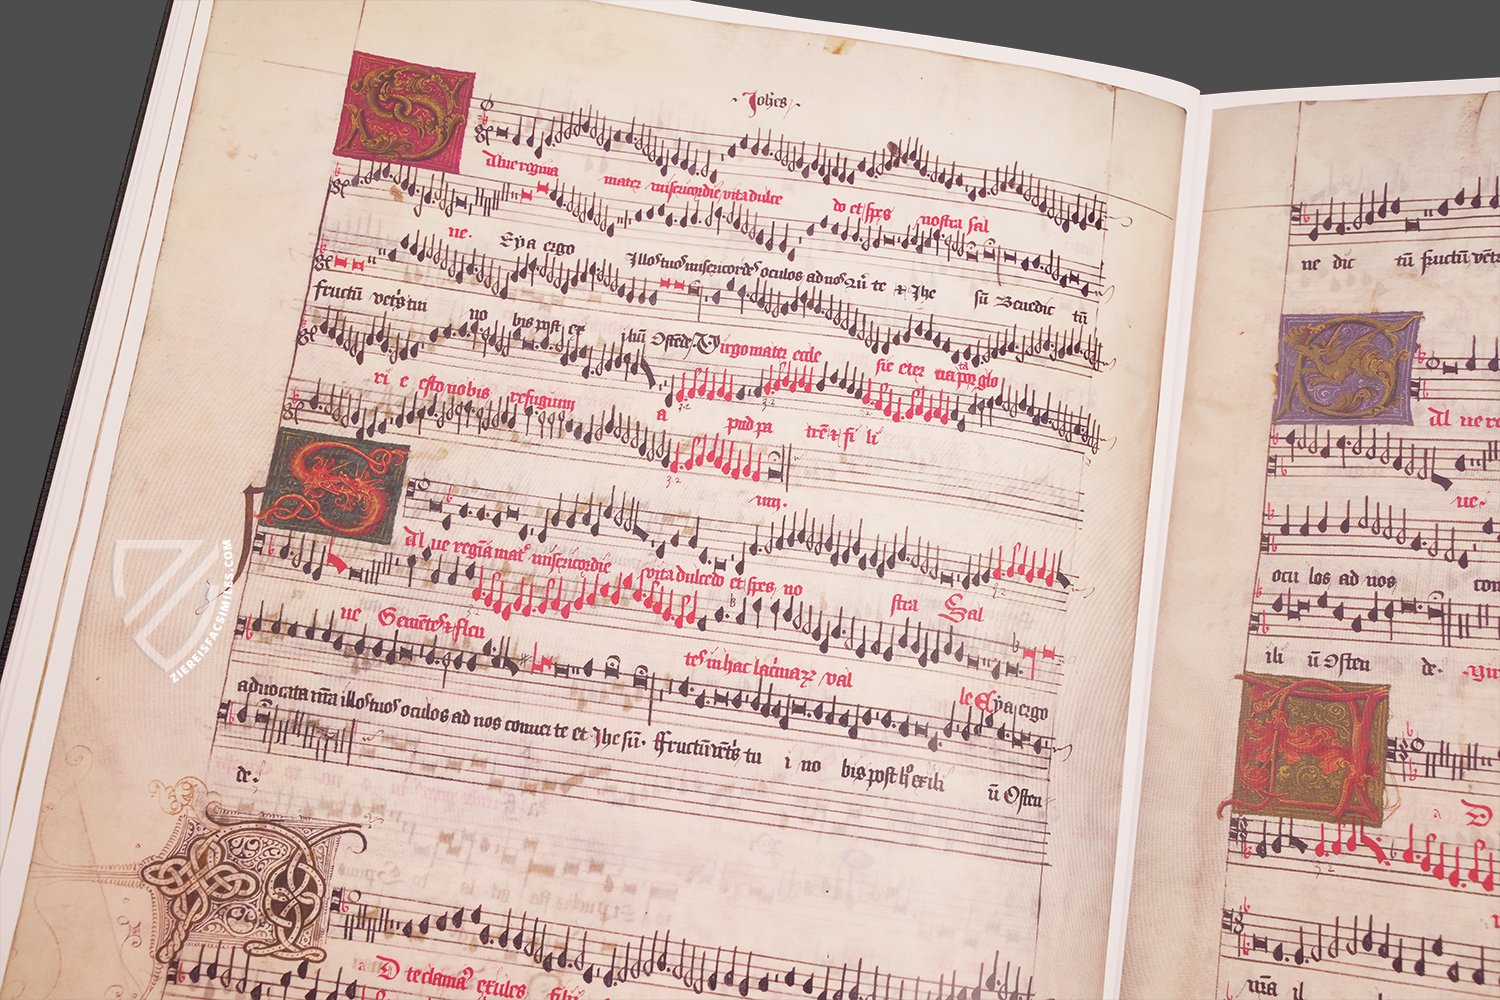 Johes
alue regina mater misericordie vita dulce do et spes nostra sal
ue. Eya ergo Illos tuos misericordes oculos ad nos te Jhe sū Benedic tū
fructū vetris tui no bis post ex iliū Ostēde Virgo mater eccle sie eter na porta glo
ri e esto nobis refugium a pud pa trē & fi li
um.
al ue regia mat misericordie vita dulcedo et spes no stra Sal
ue Gemētes & flen tes in hac lacrimarꝫ val le Eya ergo
aduocata nrā illos tuos oculos ad nos conuer te et Jhe sū. ffructū vētris tu i no bis post h exili ū Osten
de.
D te clamaꝰ exules filii
ne dic tū fructū vētr
al ue re
ue.
ocu los ad nos con
ili ū Osten de.
D
nrā il
ZIEREISFACSIMILES.COM